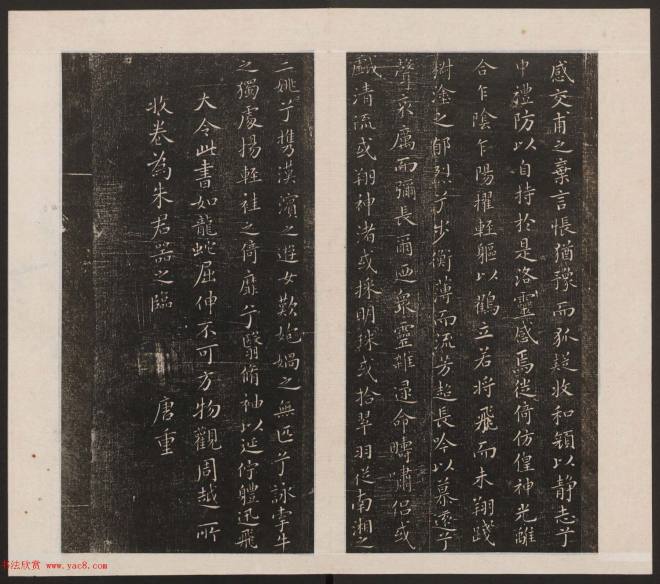 感交甫之棄言悵猶豫而狐疑收和顏以静志兮
申禮防以自持於是洛靈感焉徙倚仿偟神光離
合乍陰乍陽擢輕軀以鶴立若將飛而未翔踐
椒塗之郁烈兮步衡薄而流芳超長吟以慕遠兮
聲哀厲而彌長爾迺眾靈雜遝命疇嘯侣或
戲清流或翔神渚或採明珠或拾翠羽從南湘之
二姚兮攜漢濱之遊女歎匏媧之無匹兮詠牽牛
之獨處揚輕袿之倚靡兮翳脩袖以延佇體迅飛
大令此書如龍蛇屈伸不可方物觀周越一所
收卷為朱君器之臨 唐重
书法欣赏 www.yac8.com